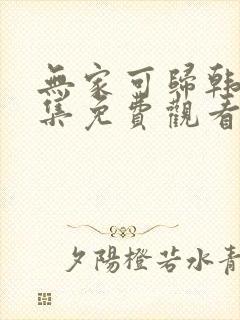 無家可歸韩
集免費觀看
夕陽橙若水青